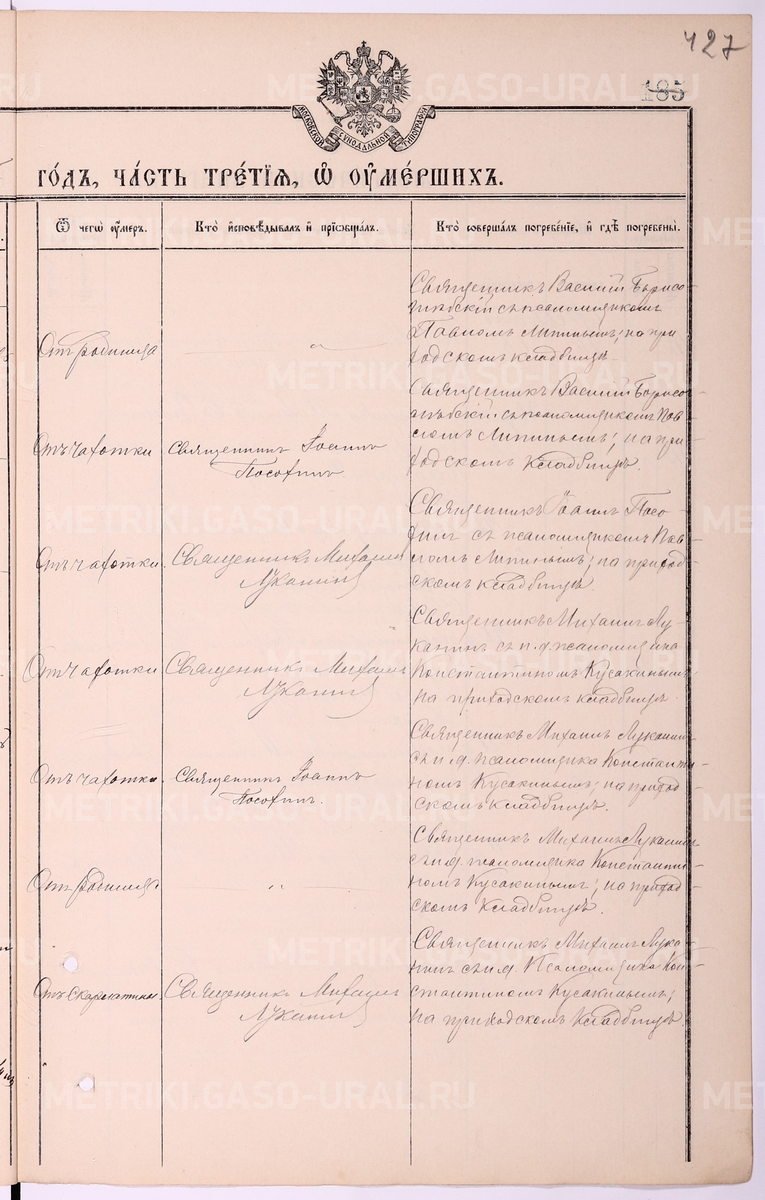 427
185
МОСКОВСКОЙ СѴНОДАЛЬНОЙ ТИПОГРАФІИ
ГО́ДЪ, ЧА́СТЬ ТРЕ́ТІѦ, Ѡ̑ ОУ҆МЕ́РШИХЪ.
Ѿ чегѡ̀ оу҆́меръ.
Кто̀ и҆сповѣ́дывалъ и҆ прїѡбща́лъ.
Кто̀ соверша́лъ погребе́нїе, и҆ гдѣ̀ погребены̀.
Отъ родимца
"
Священникъ Василій Борисо-
глѣбскій съ псаломщикомъ
Павломъ Липинымъ; на при
ходскомъ кладбищѣ.
Отъ чахотки
Священникъ Іоаннъ
Посохинъ
Священникъ Василій Борисо-
глѣбскій съ псаломщикомъ Пав-
ломъ Липинымъ; на при-
ходскомъ кладбищѣ.
Отъ чахотки.
Священникъ Михаилъ
Луканинъ
Священникъ Іоаннъ Посо-
хинъ съ псаломщикомъ Пав-
ломъ Липинымъ; на приход-
скомъ кладбищѣ.
Отъ чахотки
Священникъ Михаилъ
Луканинъ
Священникъ Михаилъ Лу-
канинъ съ и.д. псаломщика
Константиномъ Кусакинымъ
на приходскомъ кладбищѣ.
Отъ чахотки.
Священникъ Іоаннъ
Посохинъ.
Священникъ Михаилъ Луканинъ
съ и.д. псаломщика Константи-
номъ Кусакинымъ; на приход-
скомъ кладбищѣ.
Отъ родимца
"
Священникъ Михаилъ Луканинъ
съ и.д. псаломщика Константи-
номъ Кусакинымъ; на приход-
скомъ кладбищѣ.
Отъ скарлатины.
Священникъ Михаилъ
Луканинъ
Священникъ Михаилъ Лука-
нинъ съ и.д. псаломщика Кон-
стантиномъ Кусакинымъ;
на приходскомъ кладбищѣ
METRIKI.GASO-URAL.RU